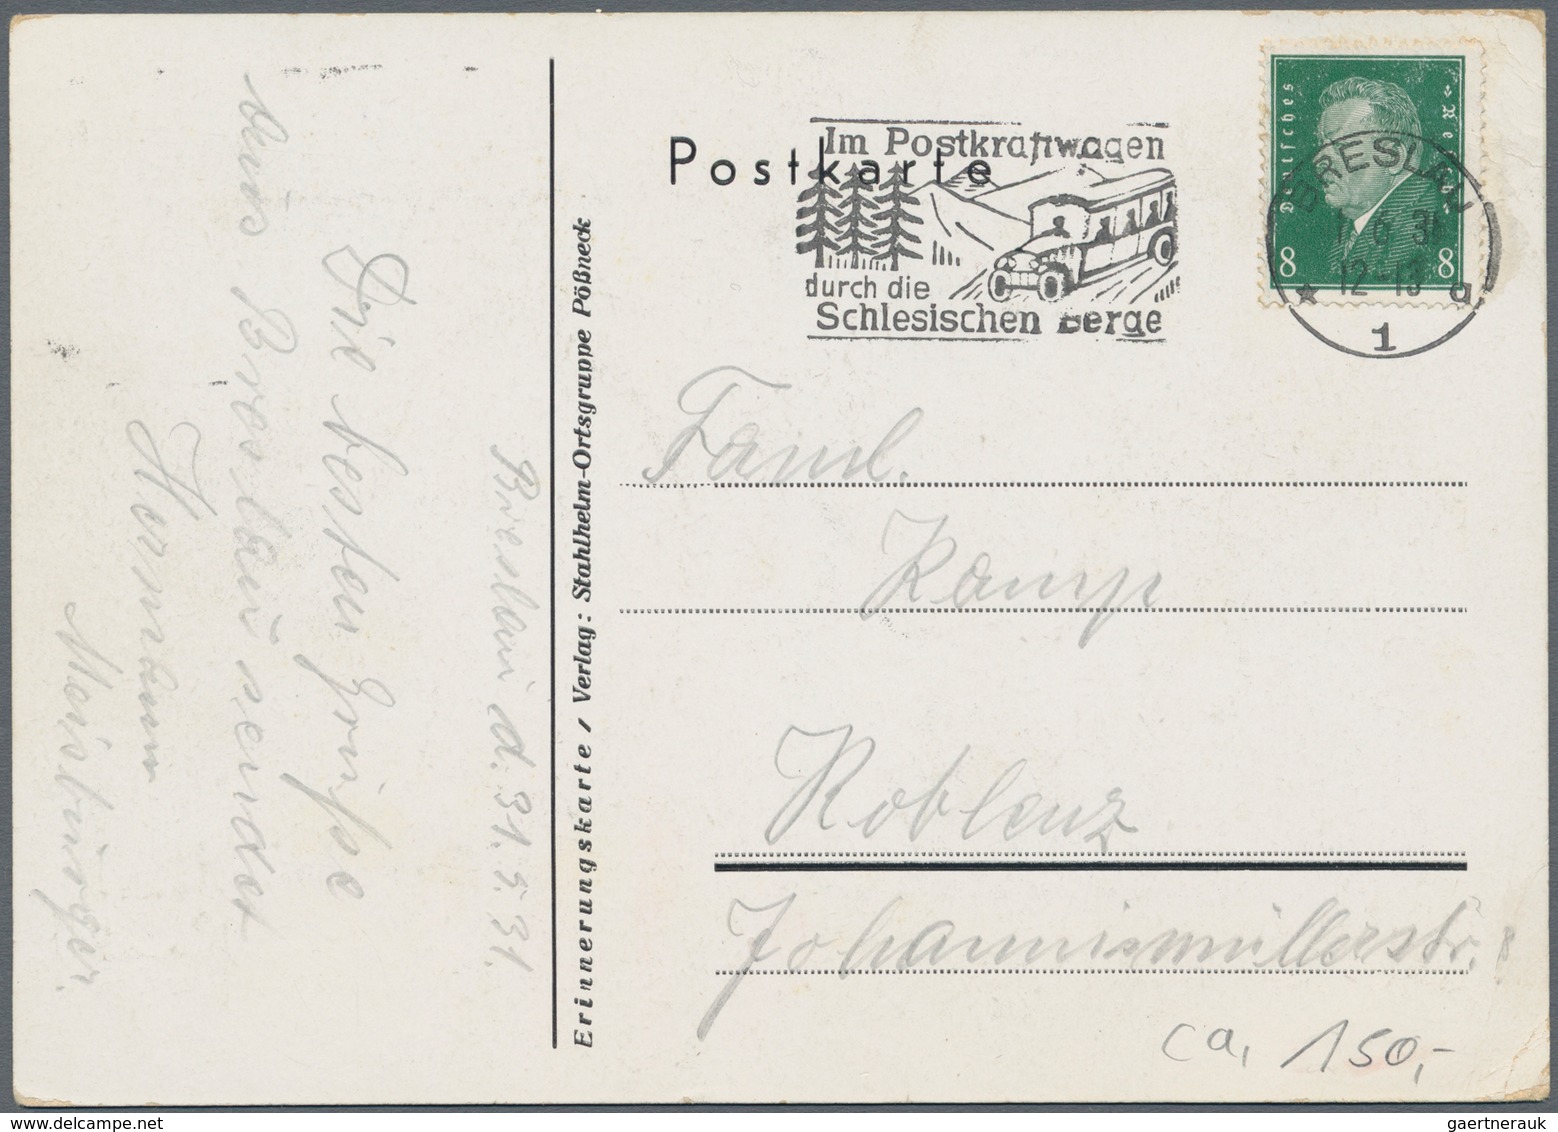 Postkarte
Im Postkraftwagen
durch die
Schlesischen Berge
Deutsches Reich
8 8
BRESLAU
1. 6 31
12-13
* 1 a
Erinnerungskarte / Verlag: Stahlhelm-Ortsgruppe Pößneck
Breslau d. 31. 5. 31.
Die besten Grüße
aus Breslau sendet
Hermann
Meisburger.
Famil.
Kamp
Koblenz
Johannismüllerstr. 8
ca, 150,-
gaertnerauk